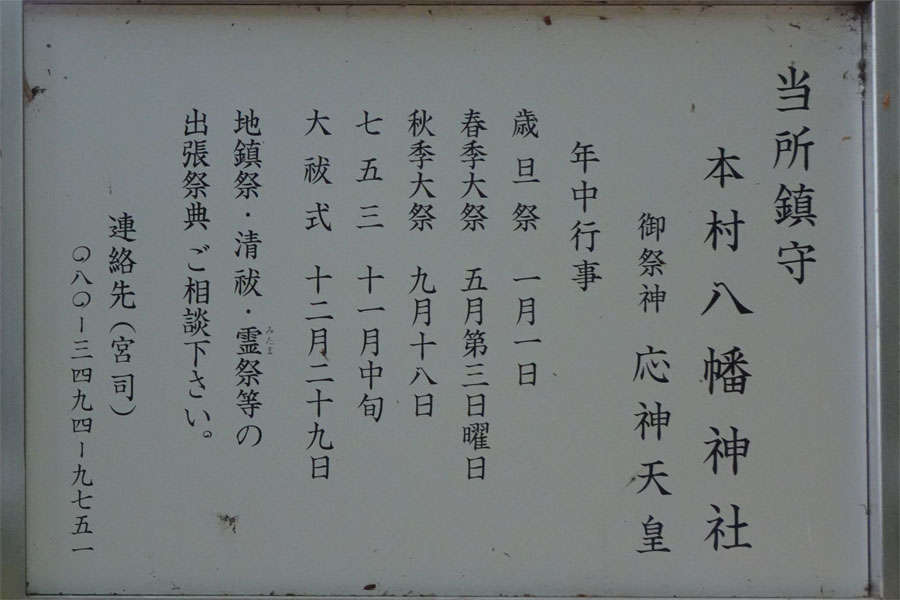 当所鎮守
本村八幡神社
御祭神 応神天皇
年中行事
歳旦祭 一月一日
春季大祭 五月第三日曜日
秋季大祭 九月十八日
七五三 十一月中旬
大祓式 十二月二十九日
地鎮祭・清祓・霊祭等の
みたま
出張祭典ご相談下さい。
連絡先(宮司)
〇八〇ー三四九四ー九七五一